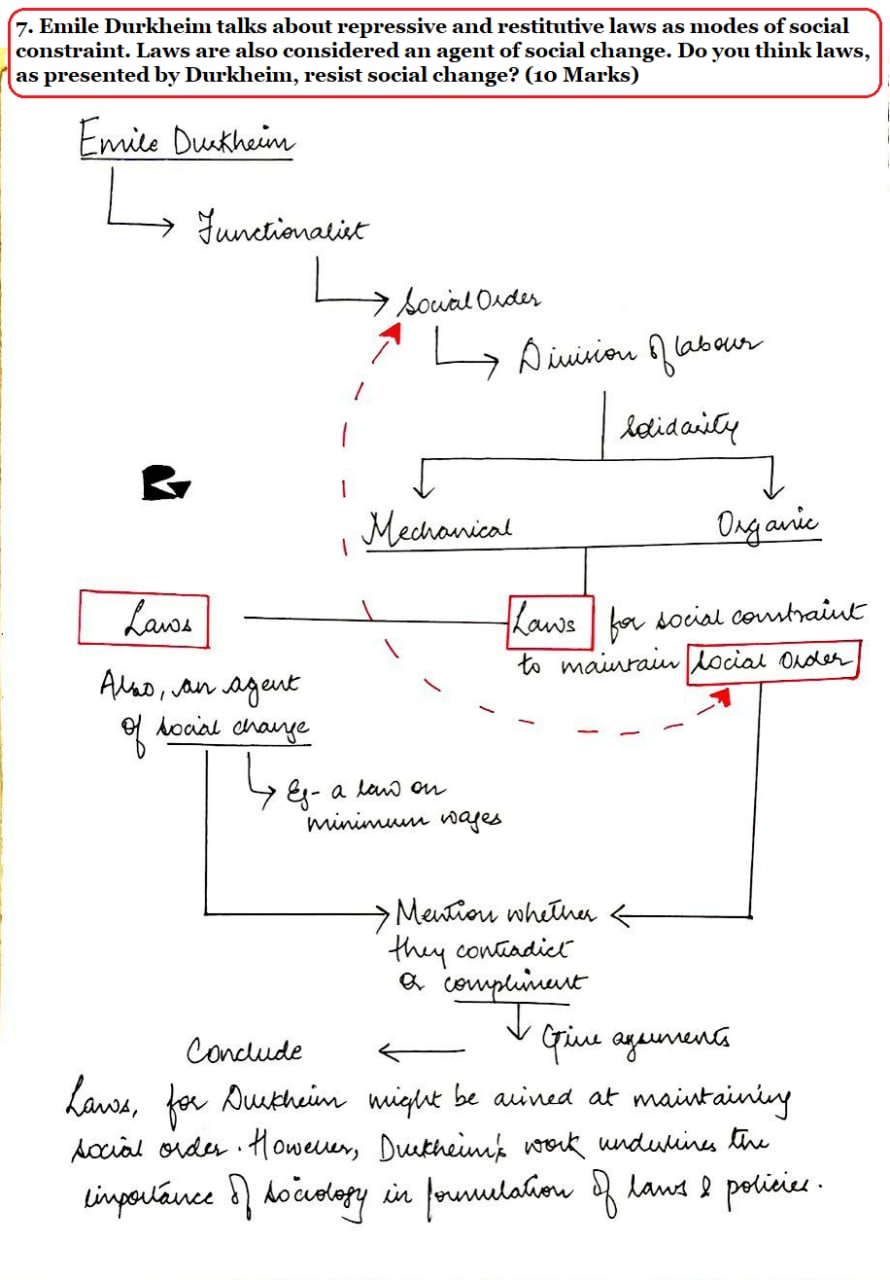 7. Emile Durkheim talks about repressive and restitutive laws as modes of social
constraint. Laws are also considered an agent of social change. Do you think laws,
as presented by Durkheim, resist social change? (10 Marks)
Emile Durkheim
Functionalist
Social Order
Division of labour
Solidarity
Mechanical
Organic
Laws
Laws for social constraint
to maintain Social Order
Also, an agent
of social change
Eg- a law on
minimum wages
Mention whether
they contradict
or compliment
Give arguments
Conclude
Laws, for Durkheim might be aimed at maintaining
social order. However, Durkheim's work underlines the
importance of Sociology in formulation of laws & policies.